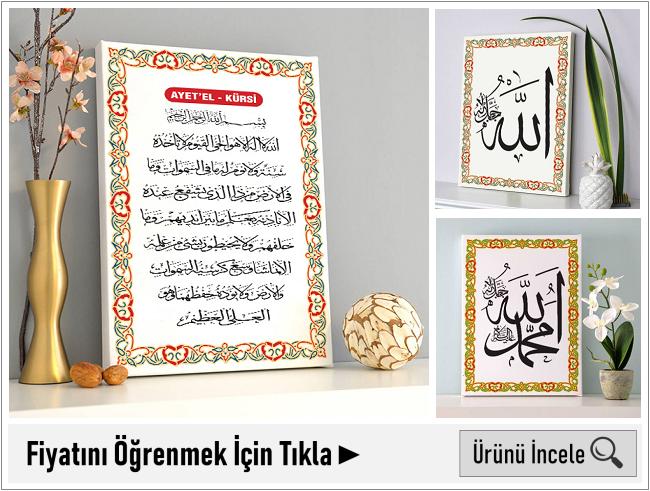 AYET'EL - KÜRSİ
بسم الله الرحمن الرحيم
الله لا اله الا هو الحي القيوم لا تأخذه
سنة ولا نوم له ما في السموات وما
في الارض من ذا الذي يشفع عنده
الا باذنه يعلم ما بين ايديهم وما
خلفهم ولا يحيطون بشئ من علمه
الا بما شاء وسع كرسيه السموات
والارض ولا يؤده حفظهما وهو
العلي العظيم
الله
جل جلاله
الله
جل جلاله
محمد
عليه السلام
Fiyatını Öğrenmek İçin Tıkla ►
Ürünü İncele